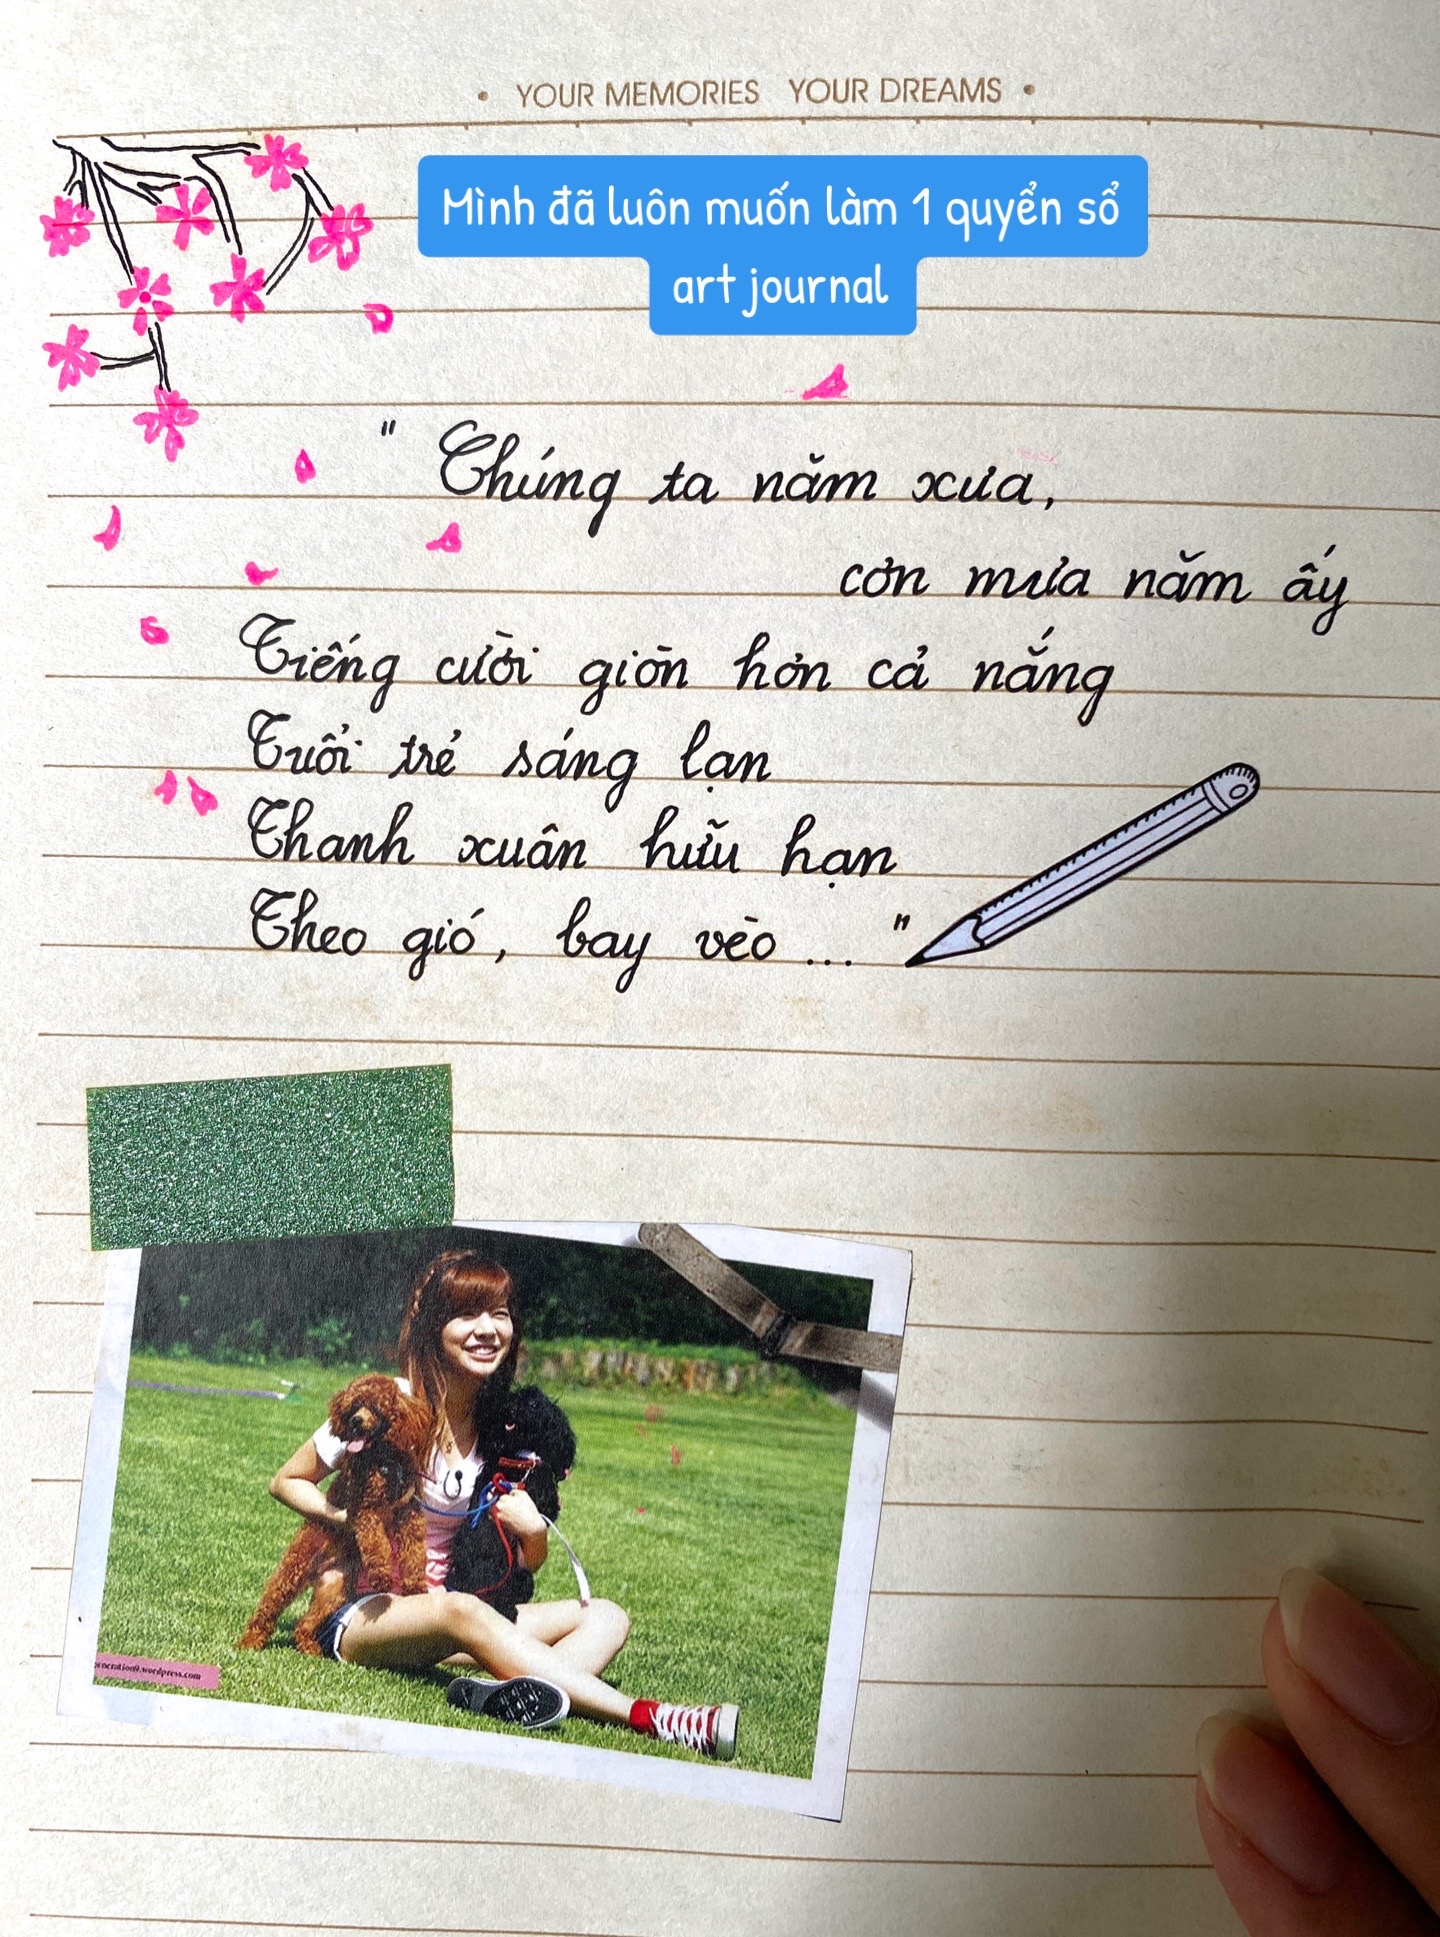 • YOUR MEMORIES YOUR DREAMS •
Mình đã luôn muốn làm 1 quyển sổ
art journal
" Chúng ta năm xưa,
cơn mưa năm ấy
Tiếng cười giòn hơn cả nắng
Tuổi trẻ sáng lạn
Thanh xuân hữu hạn
Theo gió, bay vèo ... "
eneration9.wordpress.com